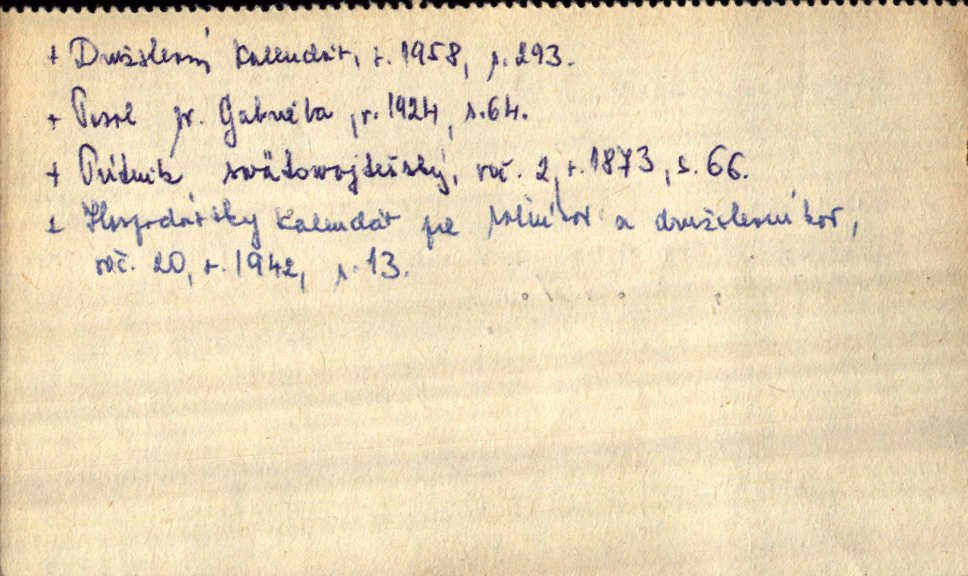 + Družstevný kalendár, r. 1958, s. 293.
+ Posol sv. Gabriela, r. 1924, s. 64.
+ Pútnik svätovojtešský, roč. 2, r. 1873, s. 66.
+ Hospodársky kalendár pre roľníkov a družstevníkov,
roč. 20, r. 1942, s. 13.